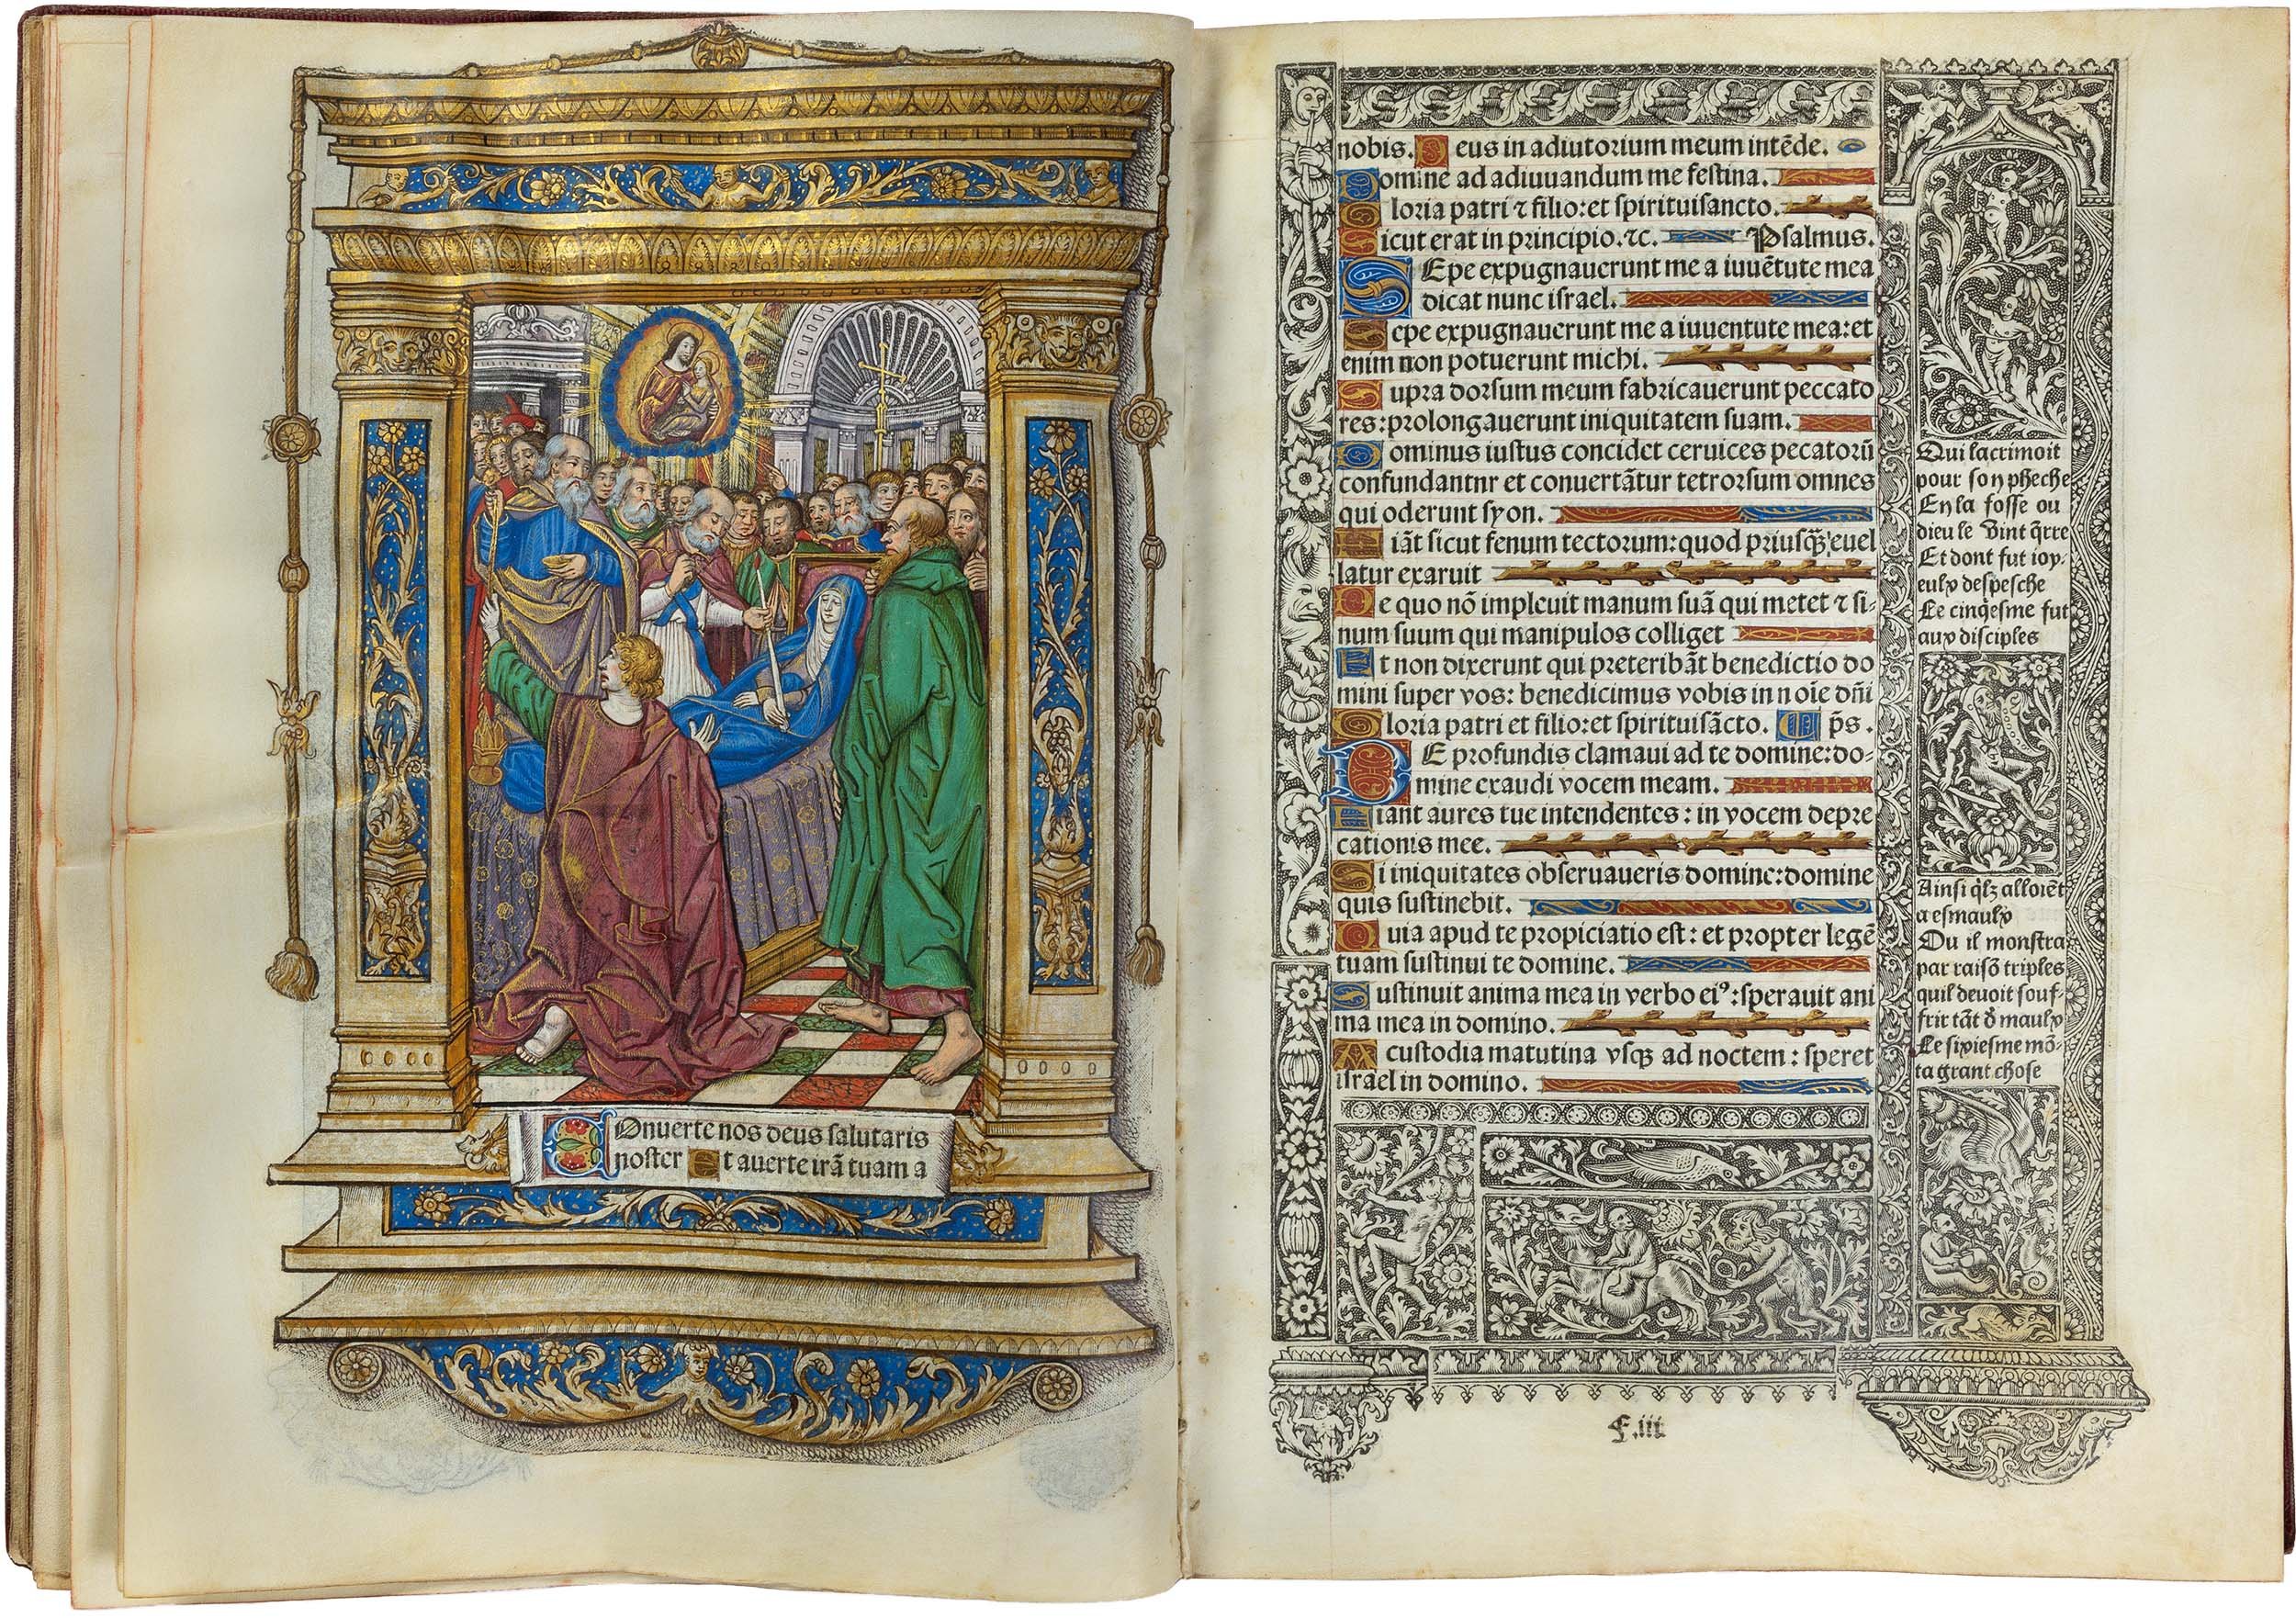 Onuerte nos deus salutaris
noster Et auerte irã tuam a
nobis. Deus in adiutorium meum intẽde.
Domine ad adiuuandum me festina.
Gloria patri ⁊ filio:et spirituisancto.
Sicut erat in principio.⁊c. Psalmus.
SEpe expugnauerunt me a iuuẽtute mea
dicat nunc israel.
Sepe expugnauerunt me a iuuentute mea:et
enim non potuerunt michi.
Supra dorsum meum fabricauerunt peccato
res:prolongauerunt iniquitatem suam.
Dominus iustus concidet ceruices pecatorũ
confundantnr et conuertãtur tetrorsum omnes
qui oderunt syon.
Fiãt sicut fenum tectorum:quod priusq̃ȝ euel
latur exaruit
De quo nõ impleuit manum suã qui metet ⁊ si-
num suum qui manipulos colliget
Et non dixerunt qui preteribãt benedictio do
mini super vos: benedicimus vobis in noĩe dñi
Gloria patri et filio:et spirituisãcto. p̃s.
DE profundis clamaui ad te domine:do-
mine exaudi vocem meam.
Fiant aures tue intendentes: in vocem depre
cationis mee.
Si iniquitates obseruaueris domine:domine
quis sustinebit.
Quia apud te propiciatio est: et propter legẽ
tuam sustinui te domine.
Sustinuit anima mea in verbo eiꝰ:sperauit ani
ma mea in domino.
A custodia matutina vsqȝ ad noctem: speret
israel in domino.
Qui lacrimoit
pour son pheche
En la fosse ou
dieu le vint q̃rre
Et dont fut ioy-
eulx despesche
Le cinqesme fut
aux disciples
Ainsi q̃lz alloiẽt
a esmaulx
Ou il monstra
par raisõ triples
quil deuoit souf-
frir tãt d̃ maulx
Le sixiesme mõ-
ta grant chose
F.iii